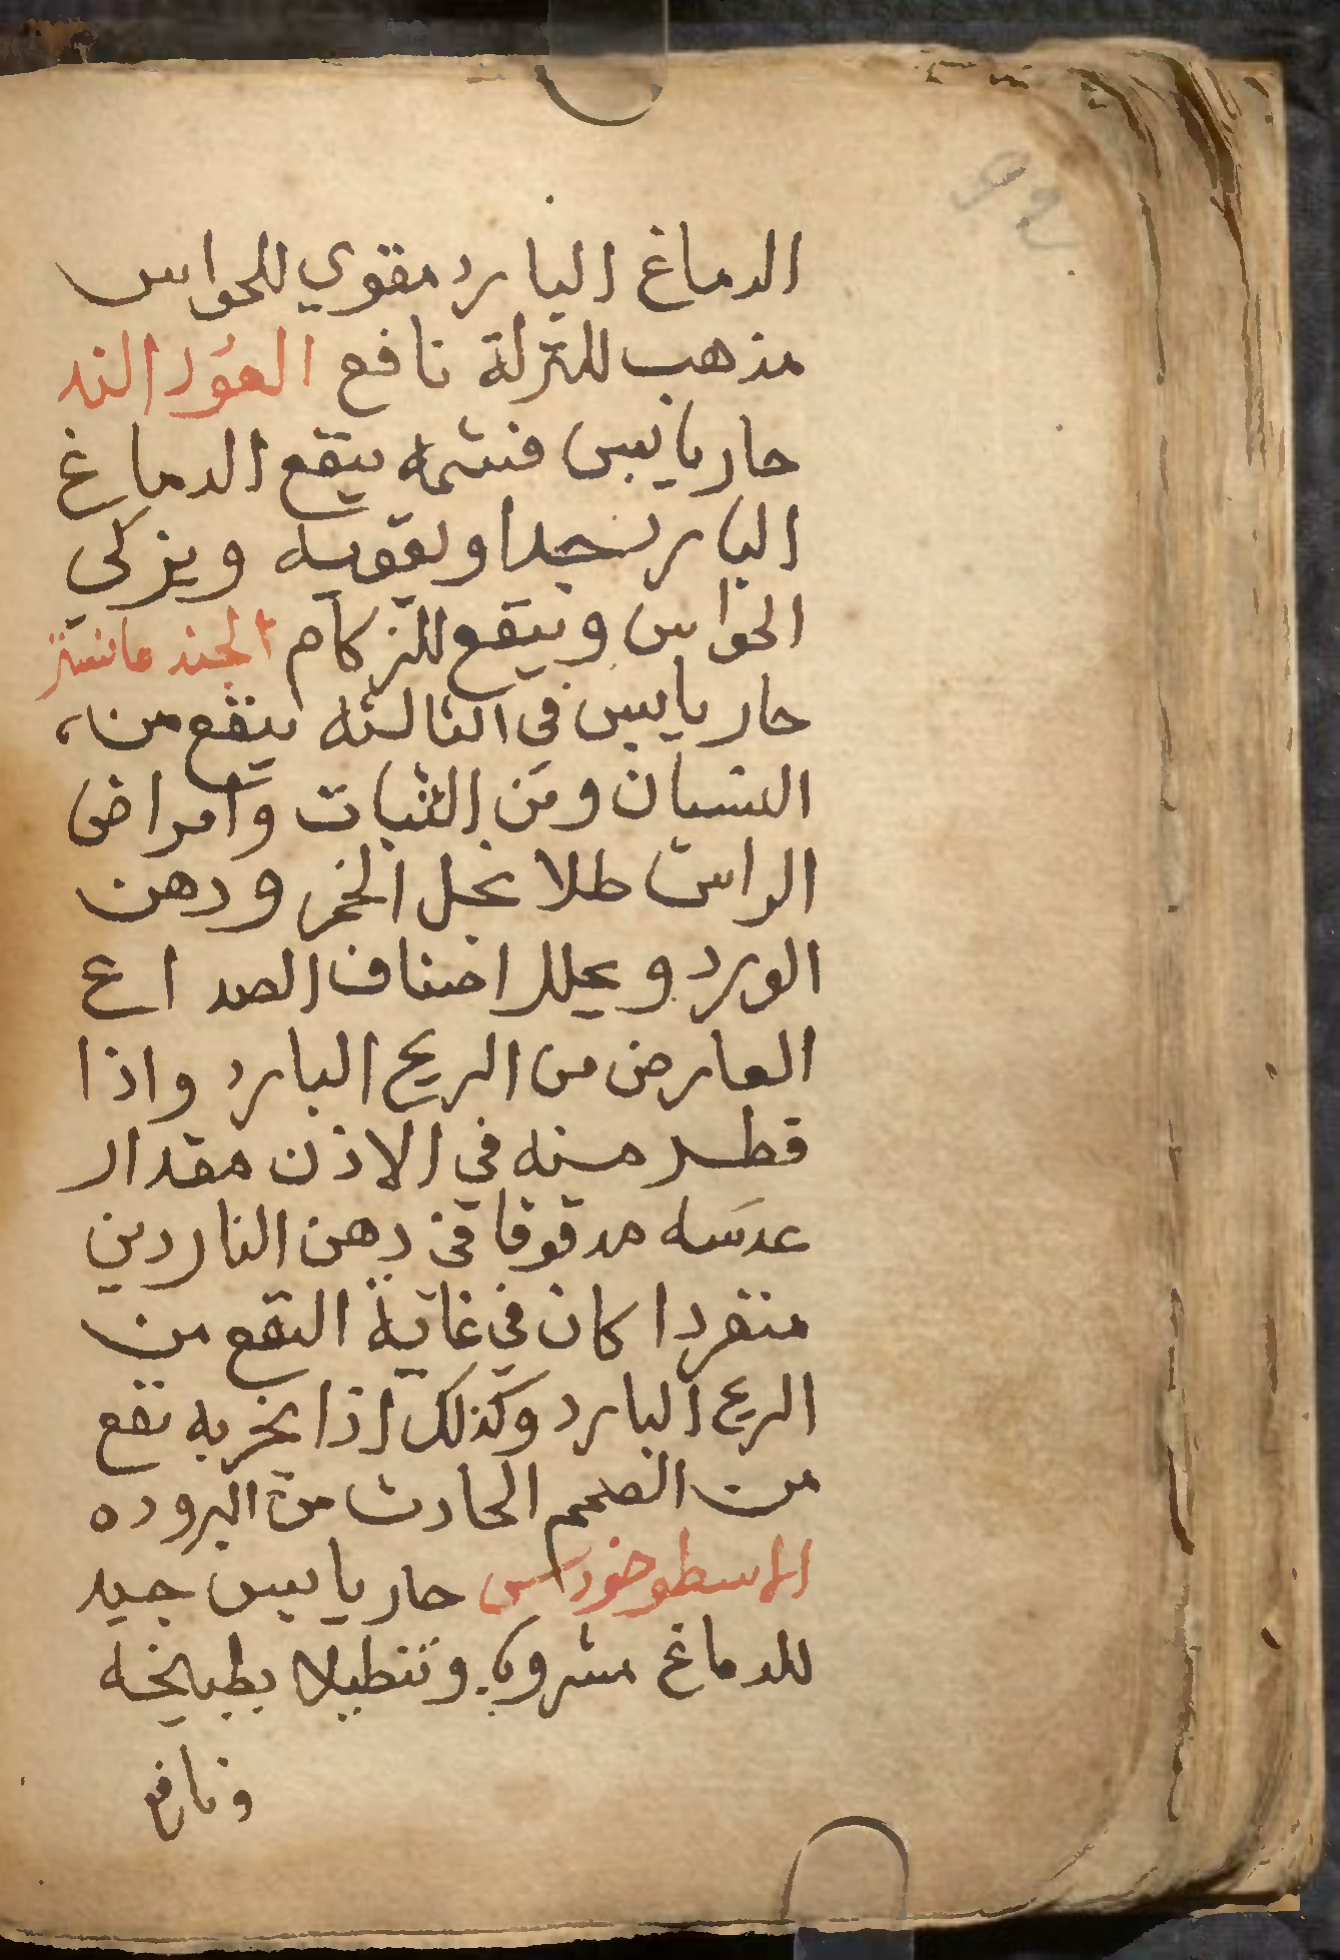 الدماغ البارد مقوي للحواس
مذهب للنزلة نافع العود الند
حار يابس فشمه ينفع الدماغ
البارد جدا ويقويه ويزكي
الحواس وينفع للزكام الجند
حار يابس في الثالثه ينفع من
النسيان ومن الثبات وامراض
الراس طلا بخل الخمر ودهن
الورد ويحلل اصناف الصداع
العارض من الريح البارد واذا
قطر منه في الاذن مقدار
عدسه مدقوقا في دهن الناردين
منفردا كان في غاية النفع من
الريح البارد وكذلك اذا بخر به نفع
من الصمم الحادث من البروده
الاسطوخودس حار يابس جيد
للدماغ مشروبا وتنطيلا بطبيخه
ونافع